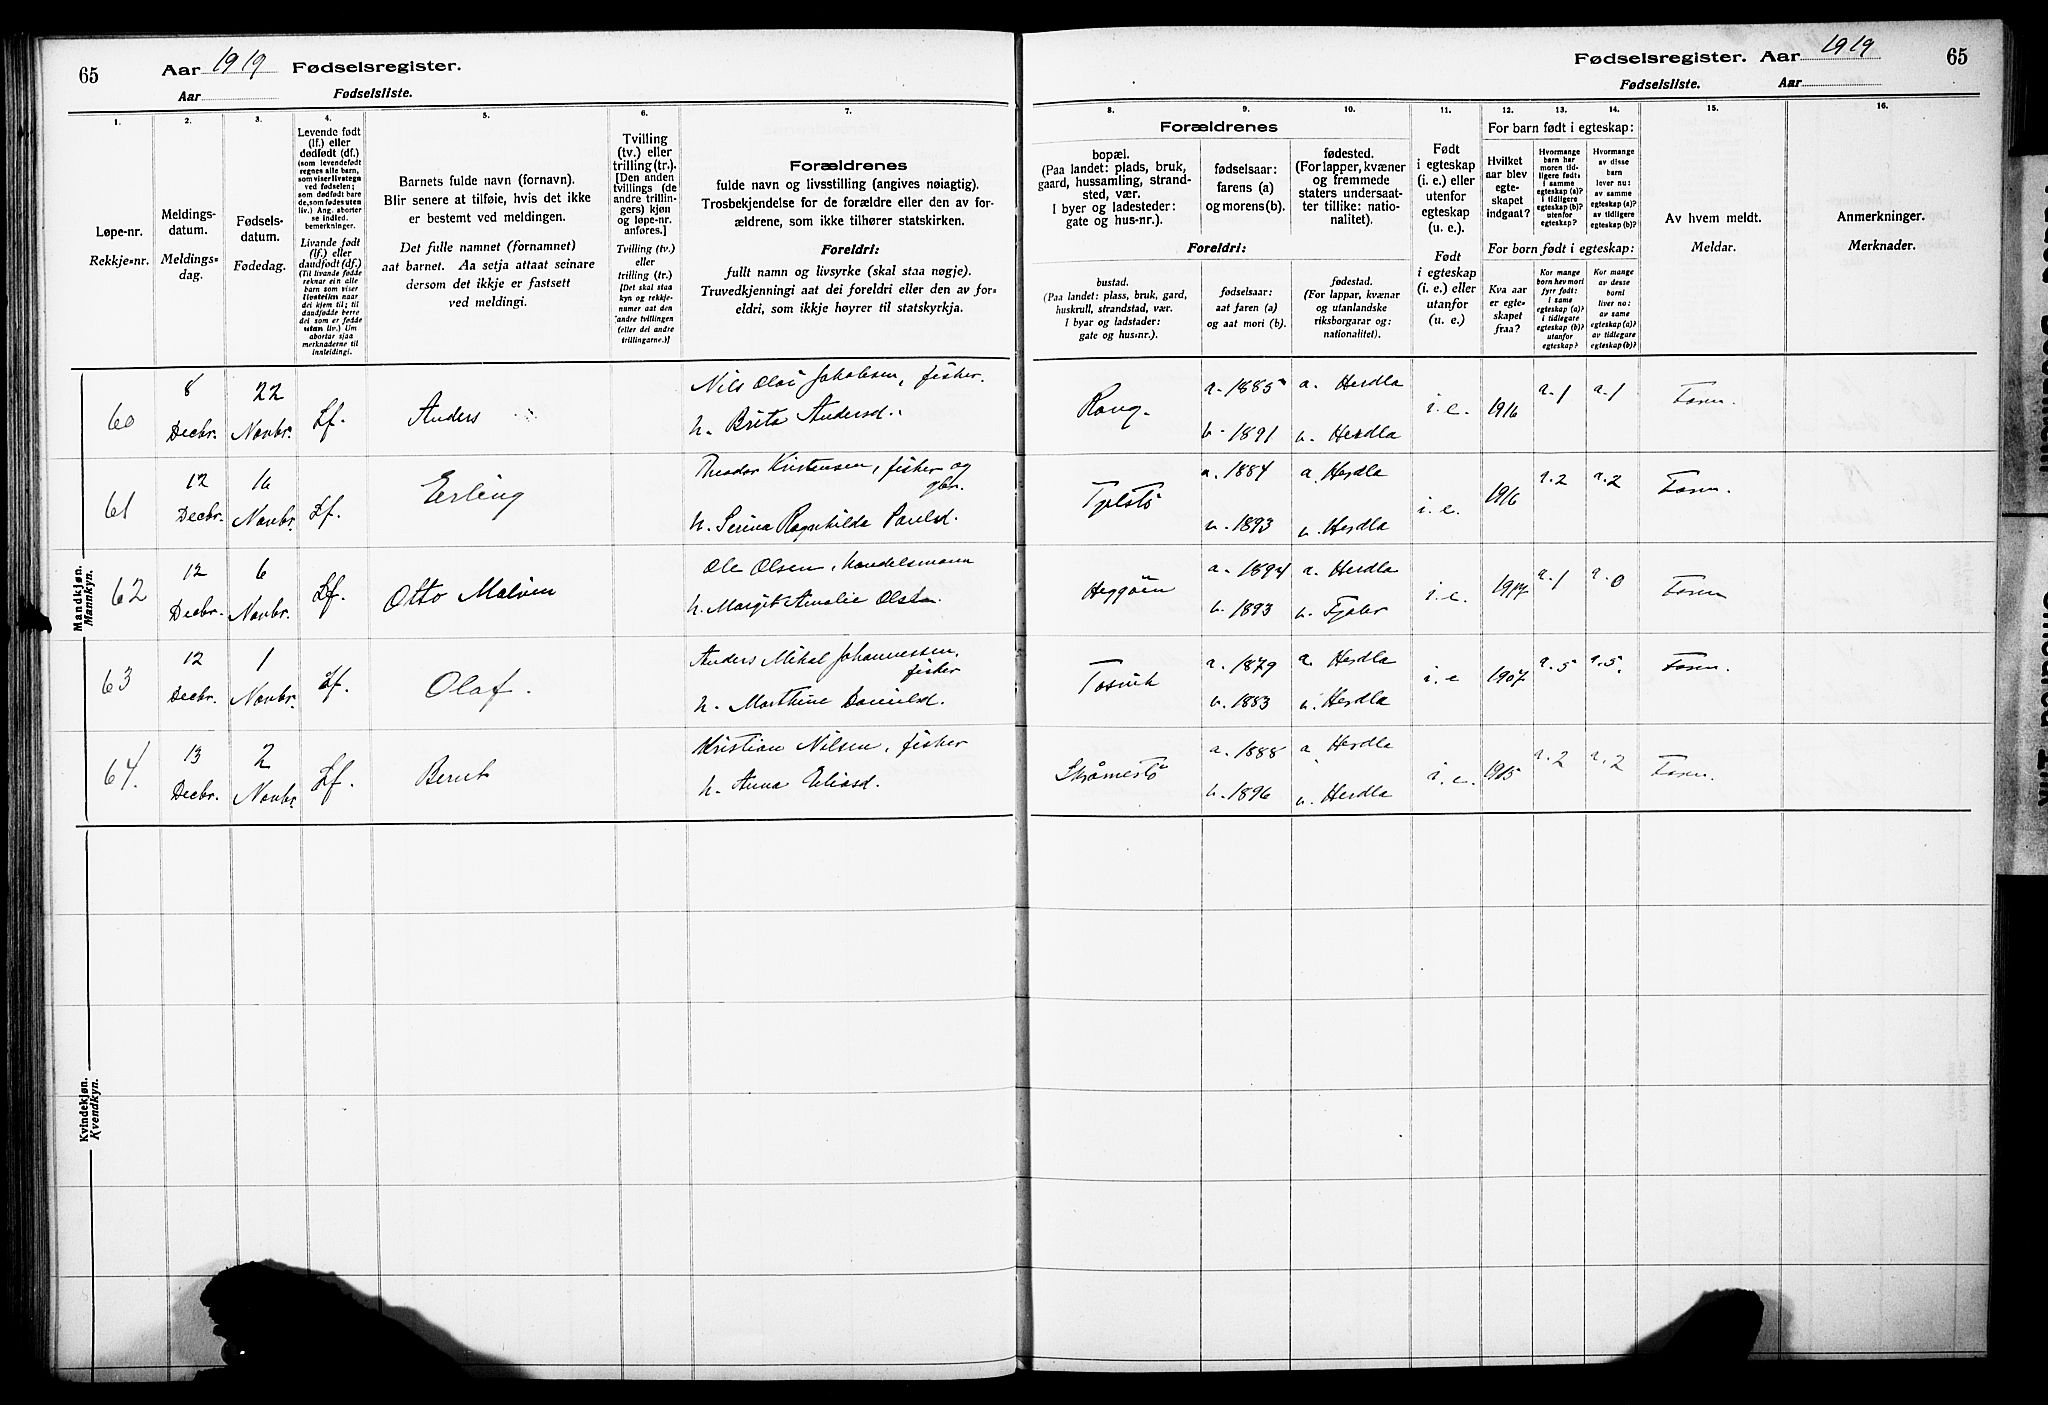 65
Aar 1919 Fødselsregister.
Aar Fødselsliste.
Fødselsregister. Aar 1919
65
Fødselsliste. Aar
1.
Løpe-nr.
Rekkje-nr.
2.
Meldings-
datum.
Meldings-
dag.
3.
Fødsels-
datum.
Fødedag.
4.
Levende født
(lf.) eller
dødfødt (df.)
(som levendefødt
regnes alle barn,
som viser livstegn
ved fødselen;
som dødfødt bare
de, som fødes uten
liv.) Ang. aborter
se indled.
bemerkninger.
Livande født
(lf.) eller
daudfødt (df.)
(Til livande fødde
reknar ein alle
barn som viser
livsteikn naar
dei kjem til; til
daudfødde berre
dei som er fødde
utan liv.) Um
abortar sjaa
merknaderne til
innleidingi.
5.
Barnets fulde navn (fornavn).
Blir senere at tilføie, hvis det ikke
er bestemt ved meldingen.
Det fulle namnet (fornamnet)
aat barnet. Aa setja attaat seinare
dersom det ikkje er fastsett
ved meldingi.
6.
Tvilling
(tv.) eller
trilling (tr.).
[Den anden
tvillings (de
andre trillin-
gers) kjøn
og løpe-nr.
anføres.]
Tvilling (tv.)
eller
trilling (tr.)
[Det skal staa
kyn og rekkje-
numer aat den
andre tvillingen
(eller dei andre
trillingarne.)]
7.
Forældrenes
fulde navn og livsstilling (angives nøiagtig).
Trosbekjendelse for de forældre eller den av for-
ældrene, som ikke tilhører statskirken.
Foreldri:
fullt namn og livsyrke (skal staa nøgje).
Truvedkjenningi aat dei foreldri eller den av for-
eldri, som ikkje høyrer til statskyrkja.
8.
9.
10.
Forældrenes
bopæl.
(Paa landet: plads, bruk,
gaard, hussamling, strand-
sted, vær.
I byer og ladesteder:
gate og hus-nr.).
fødselsaar:
farens (a)
og morens (b).
fødested.
(For lapper, kvæner
og fremmede
staters undersaat-
ter tillike: natio-
nalitet).
Foreldri:
bustad.
(Paa landet: plass, bruk, gard,
huskrull, strandstad, vær.
I byar og ladstader:
gate og hus-nr.).
fødselsaar:
aat faren (a)
og aat mori (b).
fødestad.
(For lappar, kvænar
og utanlandske
riksborgarar og:
nationalitet).
11.
Født
i egteskap
(i. e.) eller
utenfor
egteskap
(u. e.).
Født
i egteskap
(i. e.) eller
utanfor
(u. e.)
12.
13.
14.
For barn født i egteskap:
Hvilket
aar blev
egte-
skapet
indgaat?
Hvormange
barn har
moren tid-
ligere født:
i samme
egteskap (a)?
i tidligere
egteskap (b)?
utenfor
egteskap?
Hvormange
av disse
barn
lever nu:
av samme
egteskap (a)?
av tidligere
egteskap (b)?
For born født i egteskap:
Kva aar
er egte-
skapet
fraa?
Kor mange
born hev mori
fyrr født:
i same
egteskap (a)?
i tidlegare
egteskap (b)?
utanfor
egteskap?
Kor mange
av desse
borni
liver no:
av same
egteskap (a)?
av tidlegare
egteskap (b)?
15.
Av hvem meldt.
Meldar.
16.
Anmerkninger.
Merknader.
Mandkjøn.
Mannkyn.
60
8
Decbr.
22
Novbr.
Lf.
Anders
Nils Olai Jakobsen, fisker.
h. Brita Andersd.
Rong.
a. 1885
b. 1891
a. Herdla
b. Herdla
i. e.
1916
a. 1
a. 1
Farn.
61
12
Decbr.
16
Novbr.
Lf.
Erling
Theodor Kristensen, fisker og
gbr.
h. Serina Ragnhilda Paulsd.
Tjelstö
a. 1884
b. 1893
a. Herdla
b. Herdla
i. e.
1916
a. 2
a. 2
Farn.
62
12
Decbr.
6
Novbr.
Lf.
Otto Malvin
Ole Olsen, handelsmann
h. Margit Amalie Olsen.
Heggöen
a. 1894
b. 1893
a. Herdla
b. Fjaler
i. e.
1917
a. 1
a. 0
Farn
63
12
Decbr.
1
Novbr.
Lf.
Olaf.
Anders Mikal Johannessen,
fisker
h. Marthine Danielsd.
Tosvik
a. 1879
b. 1883
a. Herdla
b. Herdla
i. e
1907
a. 5
a. 5.
Farn.
64.
13
Decbr.
2
Novbr.
Lf.
Bernt
Kristian Nilsen, fisker
h. Anna Eliasd.
Skråmestö
a. 1888
b. 1896
a. Herdla
b. Herdla
i. e.
1915
a. 2
a. 2
Farn.
Kvindekjøn.
Kvendkyn.